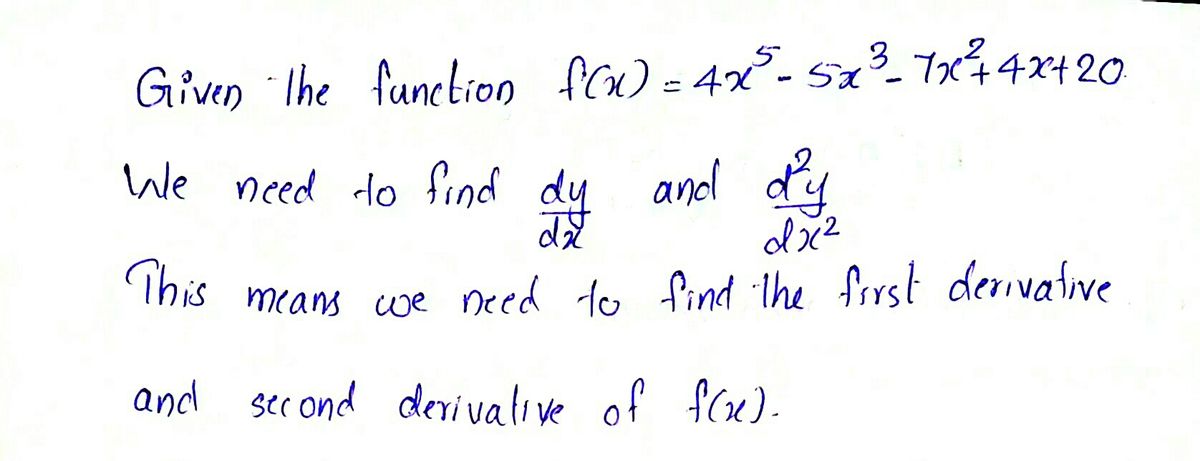 Given the function f(x) = 4x⁵ - 5x³ - 7x² + 4x + 20.
We need to find dy/dx and d²y/dx²
This means we need to find the first derivative
and second derivative of f(x).